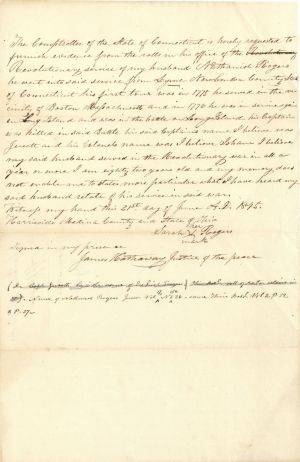 The Comptroller of the State of Connecticut is hereby requested to
furnish evidence from the rolls in his office of the Revolutionary
Revolutionary service of my husband Nathaniel Rogers
he went into said service from Lyme New London County State
of Connecticut his first tour was in 1775 he served in the vi
cinity of Boston Massachusetts and in 1776 he was in service again
in Long Island and was in the battle on Long Island his Captain
was killed in said Battle his said Captains name I believe was
Jewett and his Colonels name was I believe I believe
my said husband served in the Revolutionary war in all a
year or more I am eighty two years old and my memory does
not enable me to state more particular what I have heard my
said husband relate of his service in said war
Witness my hand this 21st day of June A.D. 1845.
Harrisville Medina County and State of Ohio
her
Sarah X Rogers
mark
Signed in my presence
James Hathaway Justice of the peace
Name of Nathaniel Rogers